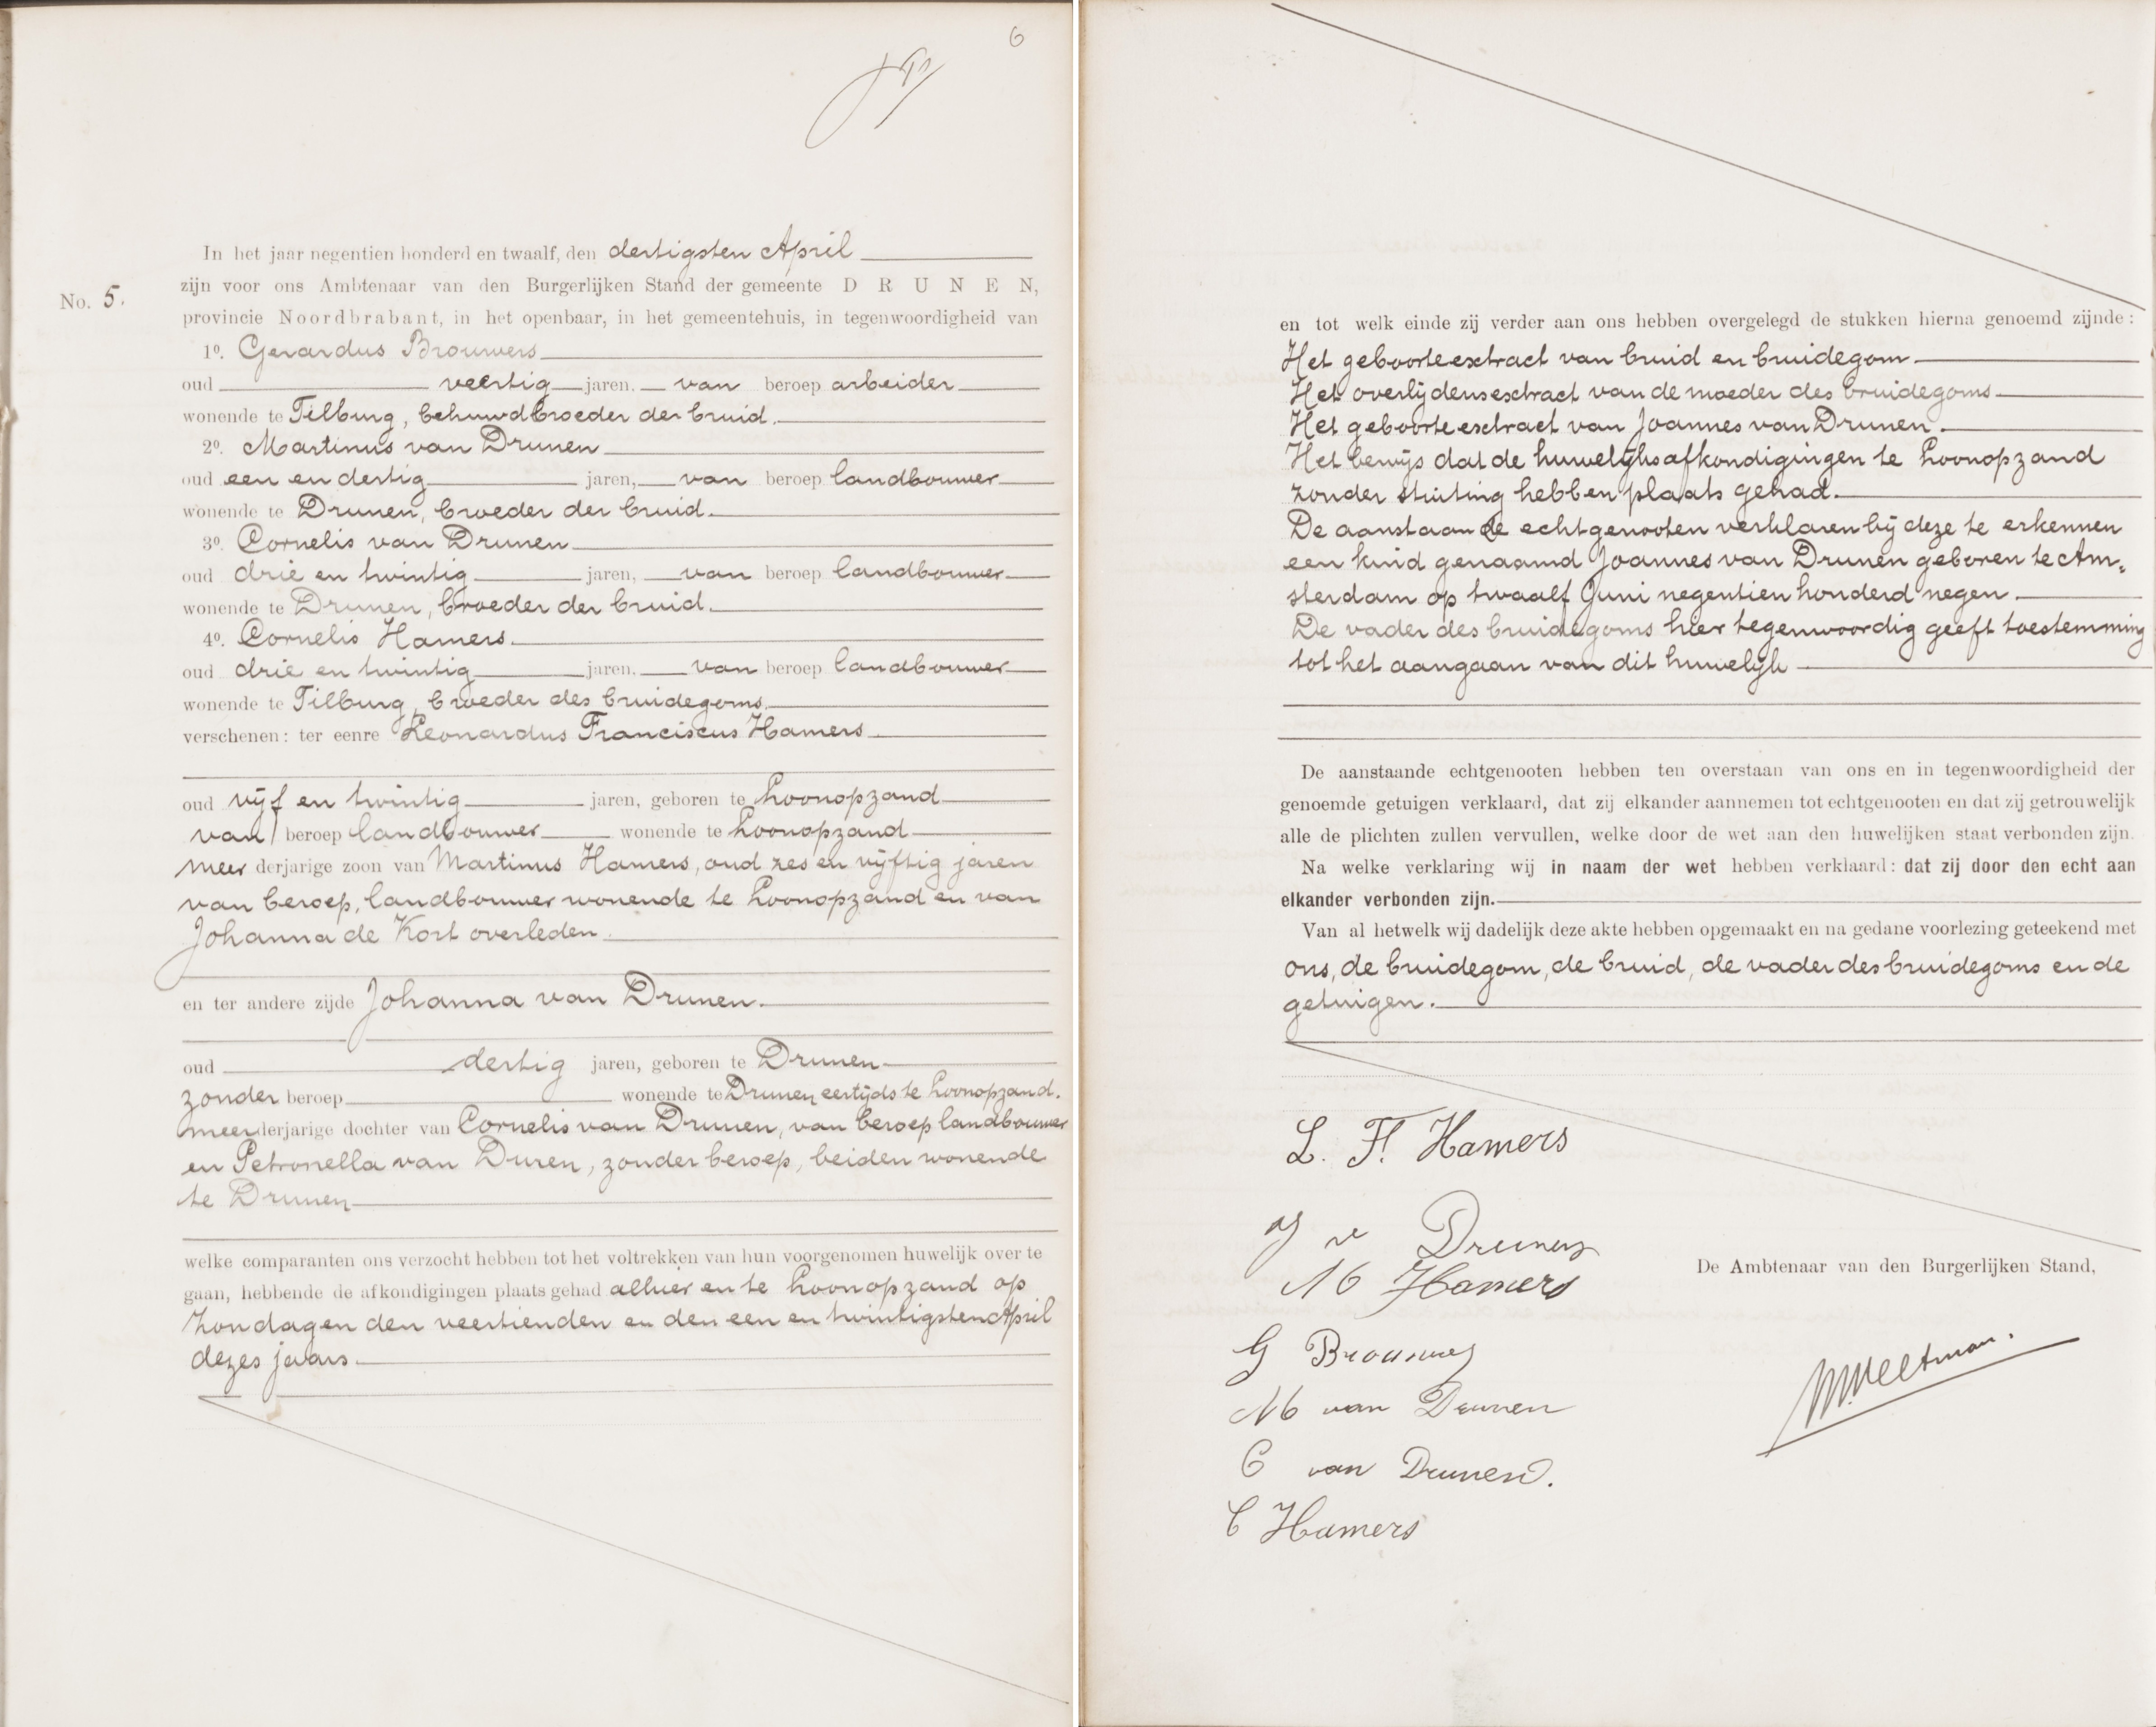 6
In het jaar negentien honderd en twaalf, den dertigsten April
zijn voor ons Ambtenaar van den Burgerlijken Stand der gemeente D R U N E N,
No. 5.
provincie Noordbrabant, in het openbaar, in het gemeentehuis, in tegenwoordigheid van
1o. Gerardus Brouwers
oud veertig jaren, van beroep arbeider
wonende te Tilburg, behuwdbroeder der bruid.
2o. Martinus van Drunen
oud een en dertig jaren, van beroep landbouwer
wonende te Drunen, broeder der bruid.
3o. Cornelis van Drunen
oud drie en twintig jaren, van beroep landbouwer
wonende te Drunen, broeder der bruid.
4o. Cornelis Hamers.
oud drie en twintig jaren, van beroep landbouwer
wonende te Tilburg, broeder des bruidegoms.
verschenen: ter eenre Leonardus Franciscus Hamers
oud vijf en twintig jaren, geboren te Loonopzand
van beroep landbouwer wonende te Loonopzand
meer derjarige zoon van Martinus Hamers, oud zes en vijftig jaren
van beroep, landbouwer wonende te Loonopzand en van
Johanna de Kort overleden.
en ter andere zijde Johanna van Drunen.
oud dertig jaren, geboren te Drunen
zonder beroep wonende te Drunen eertijds te Loonopzand.
meerderjarige dochter van Cornelis van Drunen, van beroep landbouwer
en Petronella van Duren, zonder beroep, beiden wonende
te Drunen
welke comparanten ons verzocht hebben tot het voltrekken van hun voorgenomen huwelijk over te
gaan, hebbende de afkondigingen plaats gehad alhier en te Loonopzand op
Zondagen den veertienden en den een en twintigsten April
dezes jaars.
en tot welk einde zij verder aan ons hebben overgelegd de stukken hierna genoemd zijnde:
Het geboorteextract van bruid en bruidegom
Het overlijdensextract van de moeder des bruidegoms
Het geboorteextract van Joannes van Drunen.
Het bewijs dat de huwelijksafkondigingen te Loonopzand
zonder stuiting hebben plaats gehad.
De aanstaande echtgenooten verklaren bij deze te erkennen
een kind genaamd Joannes van Drunen geboren te Am„
sterdam op twaalf Juni negentien honderd negen.
De vader des bruidegoms hier tegenwoordig geeft toestemming
tot het aangaan van dit huwelijk
De aanstaande echtgenooten hebben ten overstaan van ons en in tegenwoordigheid der
genoemde getuigen verklaard, dat zij elkander aannemen tot echtgenooten en dat zij getrouwelijk
alle de plichten zullen vervullen, welke door de wet aan den huwelijken staat verbonden zijn.
Na welke verklaring wij in naam der wet hebben verklaard: dat zij door den echt aan
elkander verbonden zijn.
Van al hetwelk wij dadelijk deze akte hebben opgemaakt en na gedane voorlezing geteekend met
ons, de bruidegom, de bruid, de vader des bruidegoms en de
getuigen.
L. F. Hamers
J v Drunen
M Hamers
De Ambtenaar van den Burgerlijken Stand,
G Brouwers
M van Drunen
C van Drunen.
C Hamers